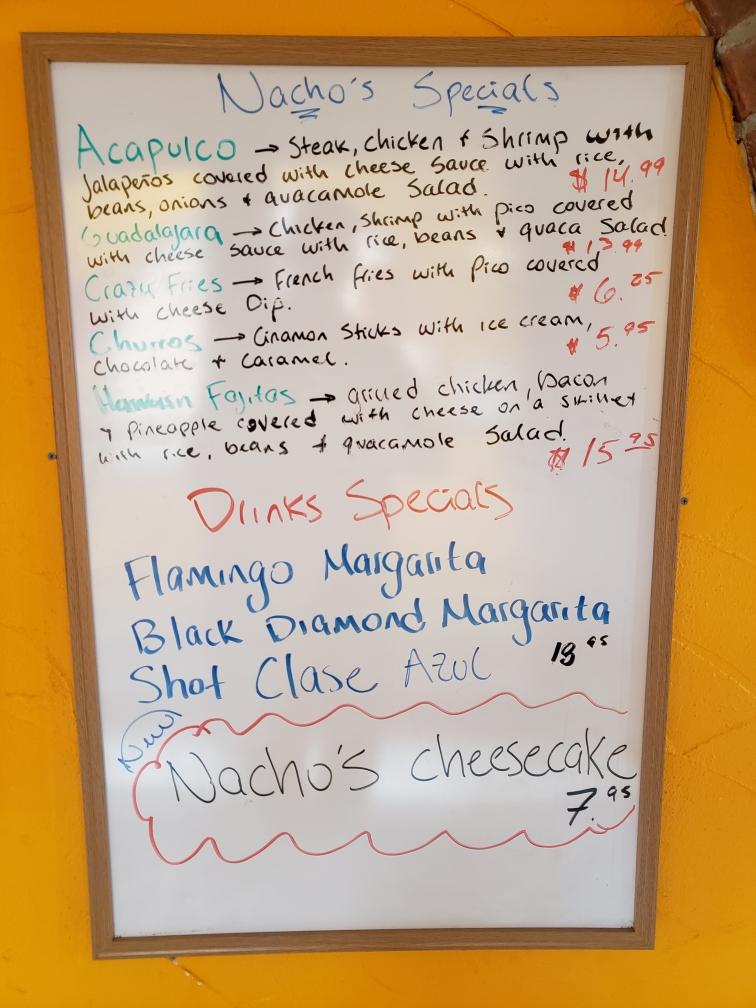 Nacho's Specials
Acapulco → Steak, chicken & Shrimp with
Jalapeños covered with cheese sauce with rice,
beans, onions & guacamole Salad. $ 14.99
Guadalajara → Chicken, Shrimp with pico covered
with cheese sauce with rice, beans & guaca Salad
$ 13.99
Crazy Fries → French fries with Pico covered
with cheese Dip. $ 6.25
Churros → Cinamon Sticks with ice cream,
chocolate + caramel. $ 5.95
Fajitas → grilled chicken, Bacon
& Pineapple covered with cheese on a skillet
with rice, beans & guacamole Salad.
$ 15.95
Drinks Specials
Flamingo Margarita
Black Diamond Margarita
Shot Clase Azul
New
Nacho's cheesecake
7.95